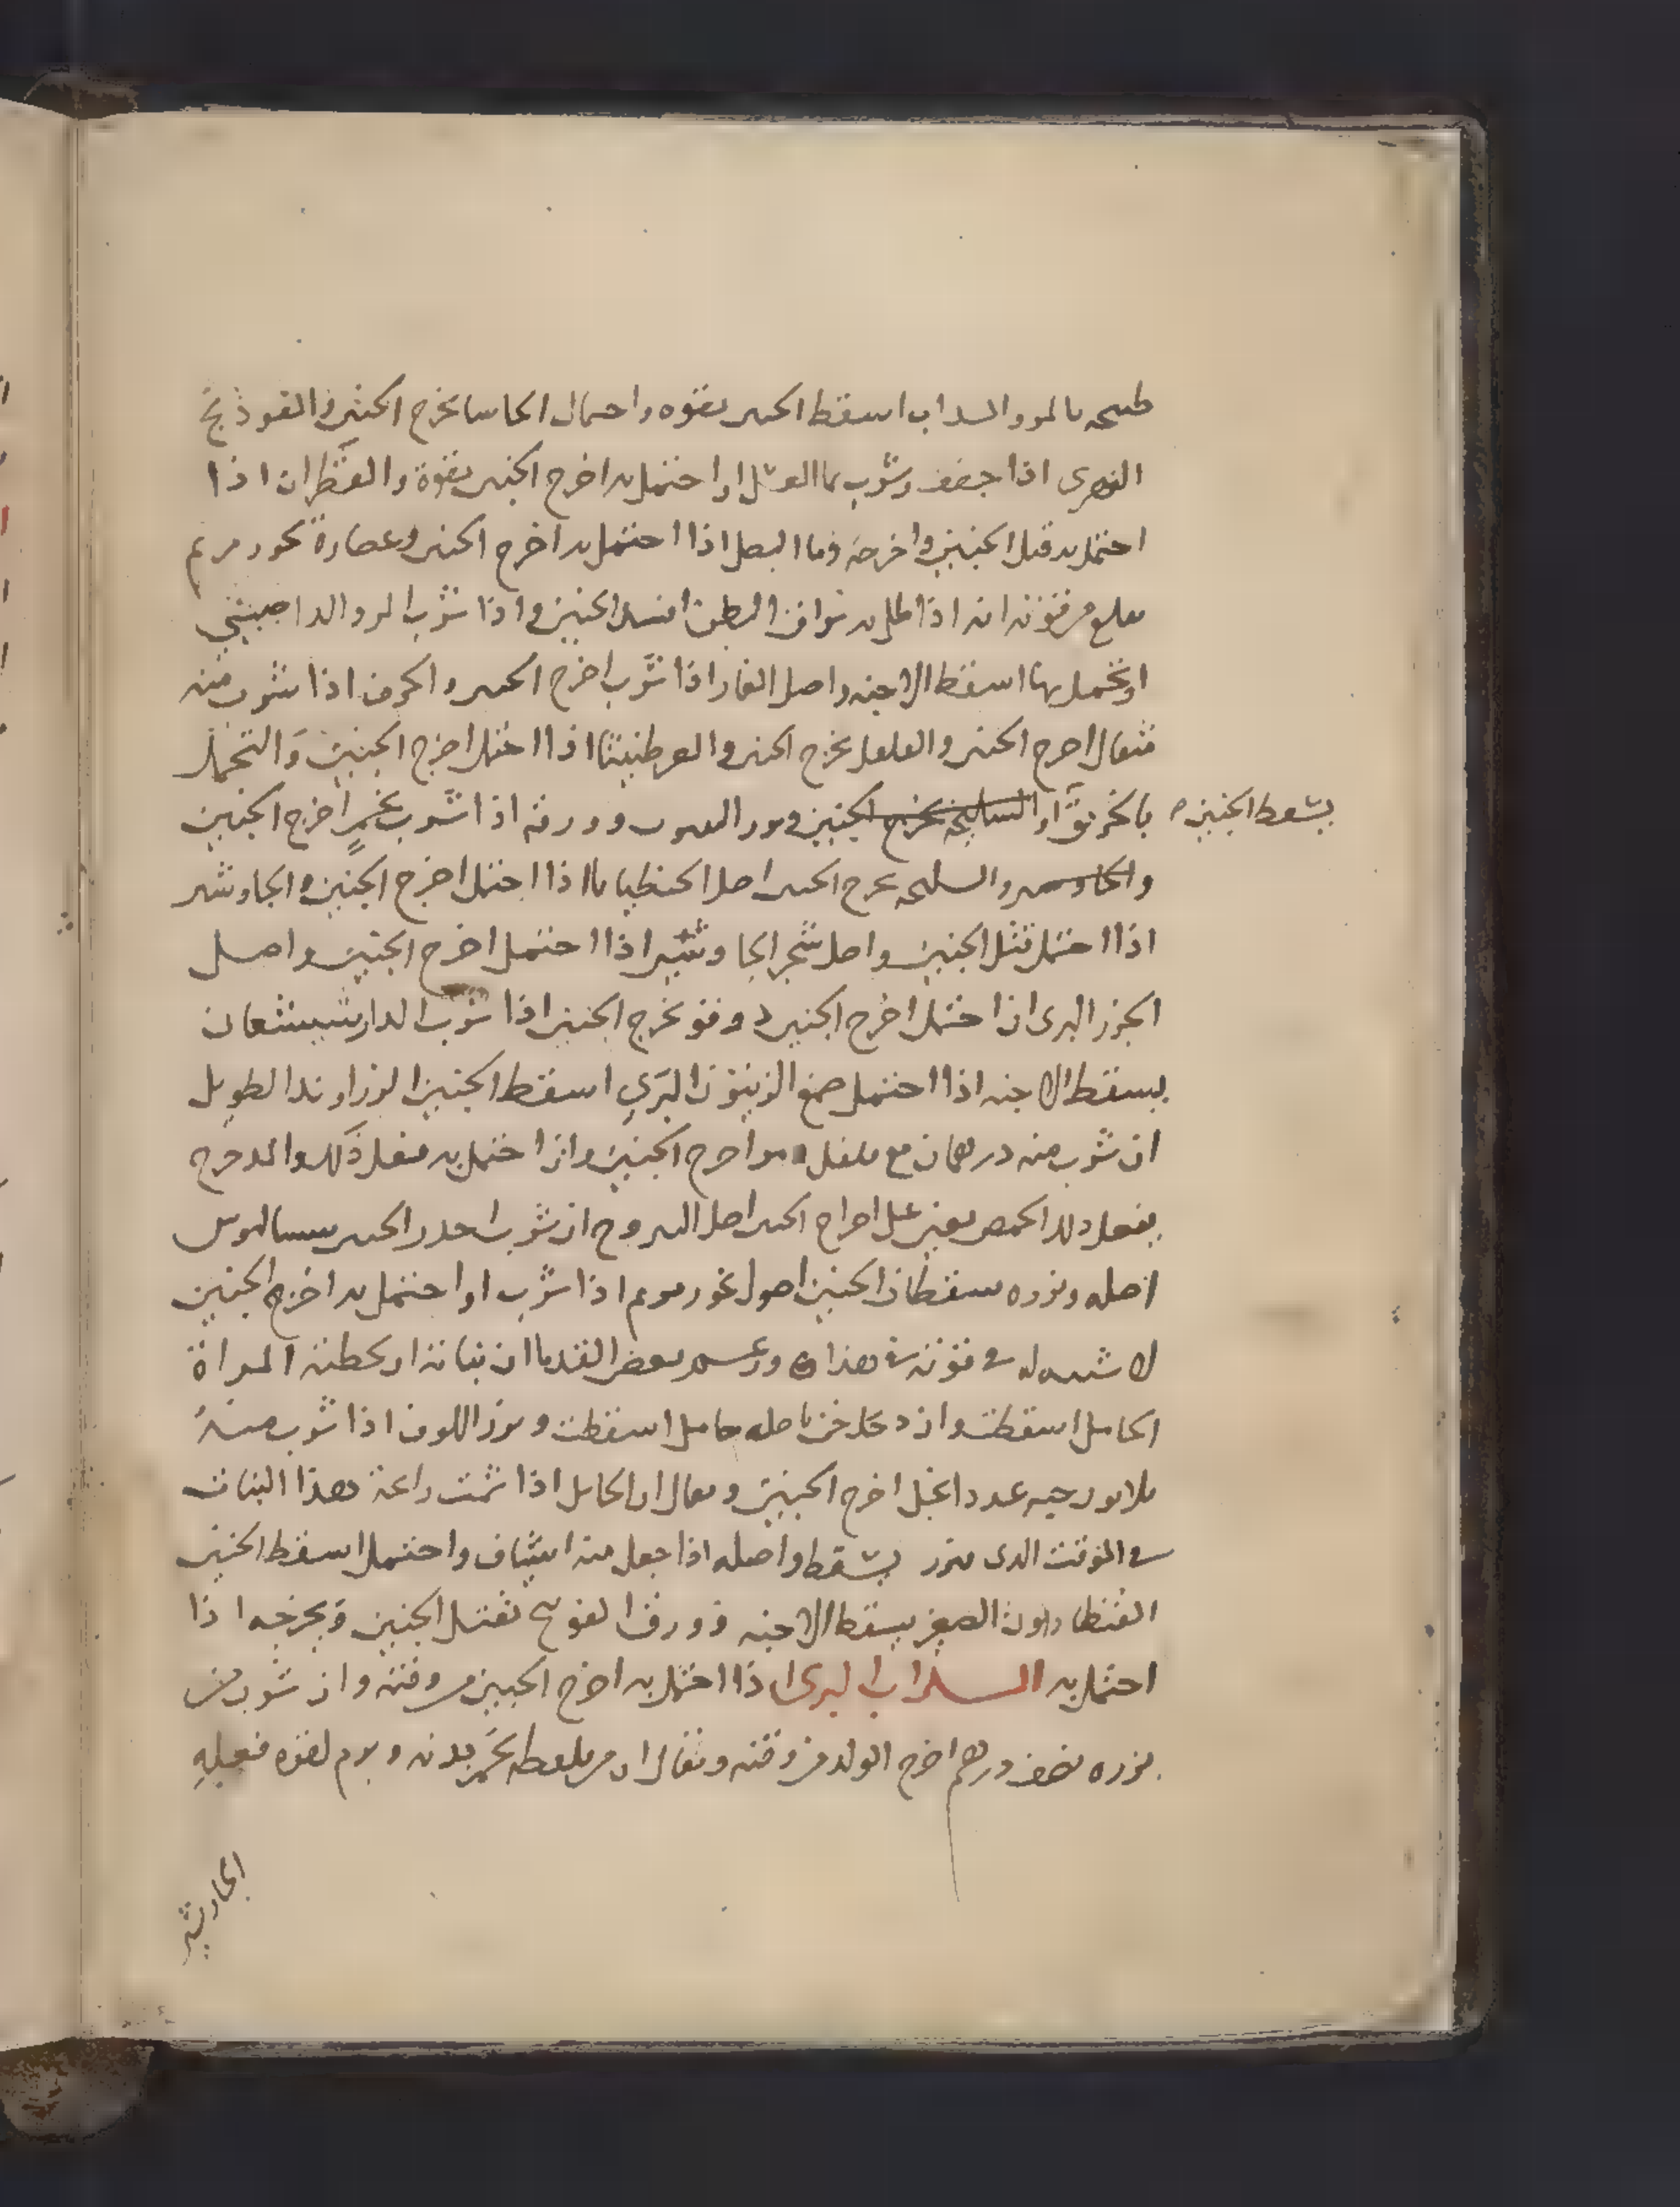 طبيخه بالمر والسداب اسقط الجنين بقوه واحتمال الحاسا يخرج الجنين والفوذنج
النهري اذا جفف وشرب بما العسل او احتمل به اخرج الجنين بقوة والقطران اذا
احتمل به قتل الجنين واخرجه وما البصل اذا احتمل به اخرج الجنين وعصارة بخور مريم
من قوته انه اذا طلي به مراق البطن افسد الجنين واذا شرب المر والدارصيني
او تحمل بهما اسقط الاجنه واصل الغار اذا شرب اخرج الجنين والحرف اذا شرب منه
مثقال اخرج الجنين والفلفل يخرج الجنين والعرطنيثا اذا احتمل اخرج الجنين والتحمل
بالخربق او السليخه يخرج الجنين وورقه اذا شرب بخمر اخرج الجنين
يسقط الجنين
والجاوشير والسليخه يخرج الجنين اصل الجنطيانا اذا احتمل اخرج الجنين والجاوشير
اذا احتمل قتل الجنين واصل شجر الجاوشير اذا احتمل اخرج الجنين واصل
الجزر البري اذا احتمل اخرج الجنين دوقو يخرج الجنين اذا شرب الدارشيشعان
يسقط الاجنه اذا احتمل صمغ الزيتون البري اسقط الجنين الزراوند الطويل
ان شرب منه درهمان مع فلفل ومر اخرج الجنين واذا احتمل به فعل ذلك والمدحرج
يفعل ذلك الحمص يعين على اخراج الجنين اصل اليبروح ان شرب احدر الجنين سساليوس
اصله وبزره يسقطان الجنين اصول بخور مريم اذا شرب او احتمل به اخرج الجنين
لا شبيه له في قوته في هذا وزعم بعض القدما ان نباته ان تخطته المراة
الحامل اسقطت وان دخلخن باصله حامل اسقطت وبزر اللوف اذا شرب منه
ثلاثون حبه عددا بخل اخرج الجنين ويقال ان الحامل اذا شمت رائحة هذا النبات
في الوقت الذي يسقط واصله اذا جعل منه اشياف واحتمل اسقط الجنين
القنطاريون الصغير يسقط الاجنه وورق الفوتنج تقتل الجنين وتخرجه اذا
احتمل به السداب البري اذا احتمل به اخرج الجنين من وقته وان شرب من
بزره نصف درهم اخرج الولد من وقته ويقال ان من يلقطه يحمر بدنه ويرم لقوه فعله
الجاوشير